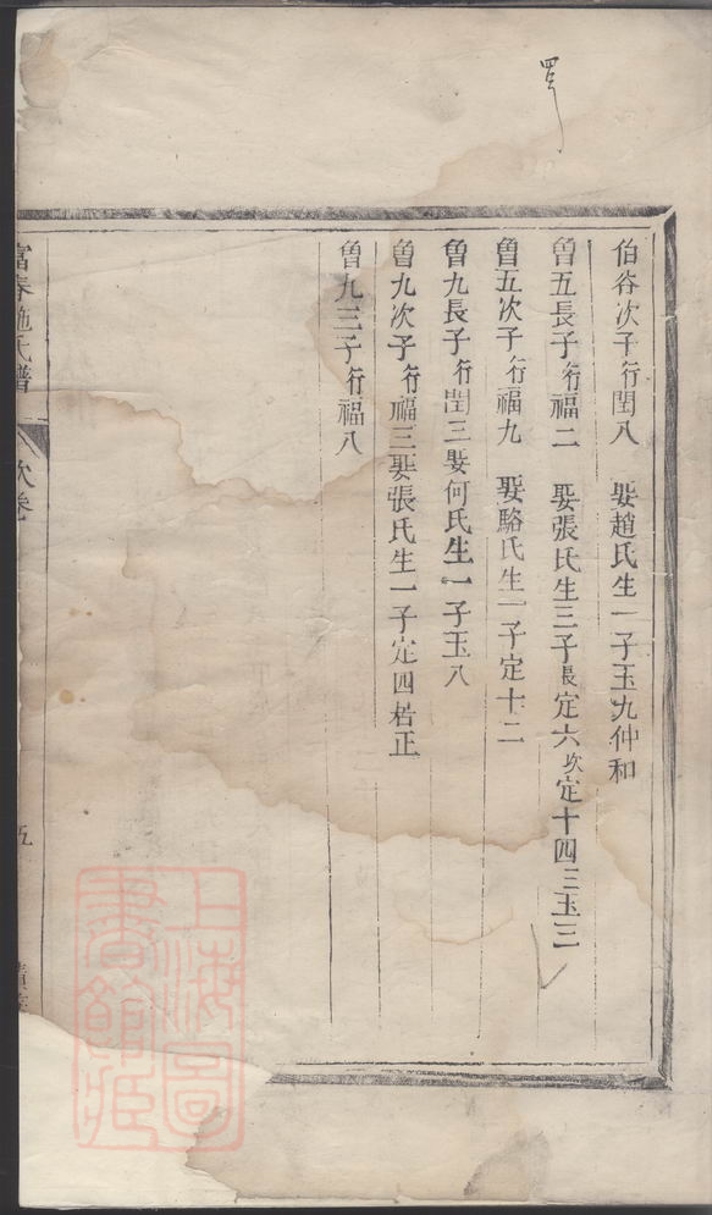 伯谷次子行閏八　娶趙氏生一子玉九仲和
曾五長子行福二　娶張氏生三子長定六次定十四三玉三
曾五次子行福九　娶駱氏生一子定十二
曾九長子行閏三娶何氏生一子玉八
曾九次子行福三娶張氏生一子定四桰正
曾九三子行福八
富春施氏譜
次卷
五
上海圖書館藏